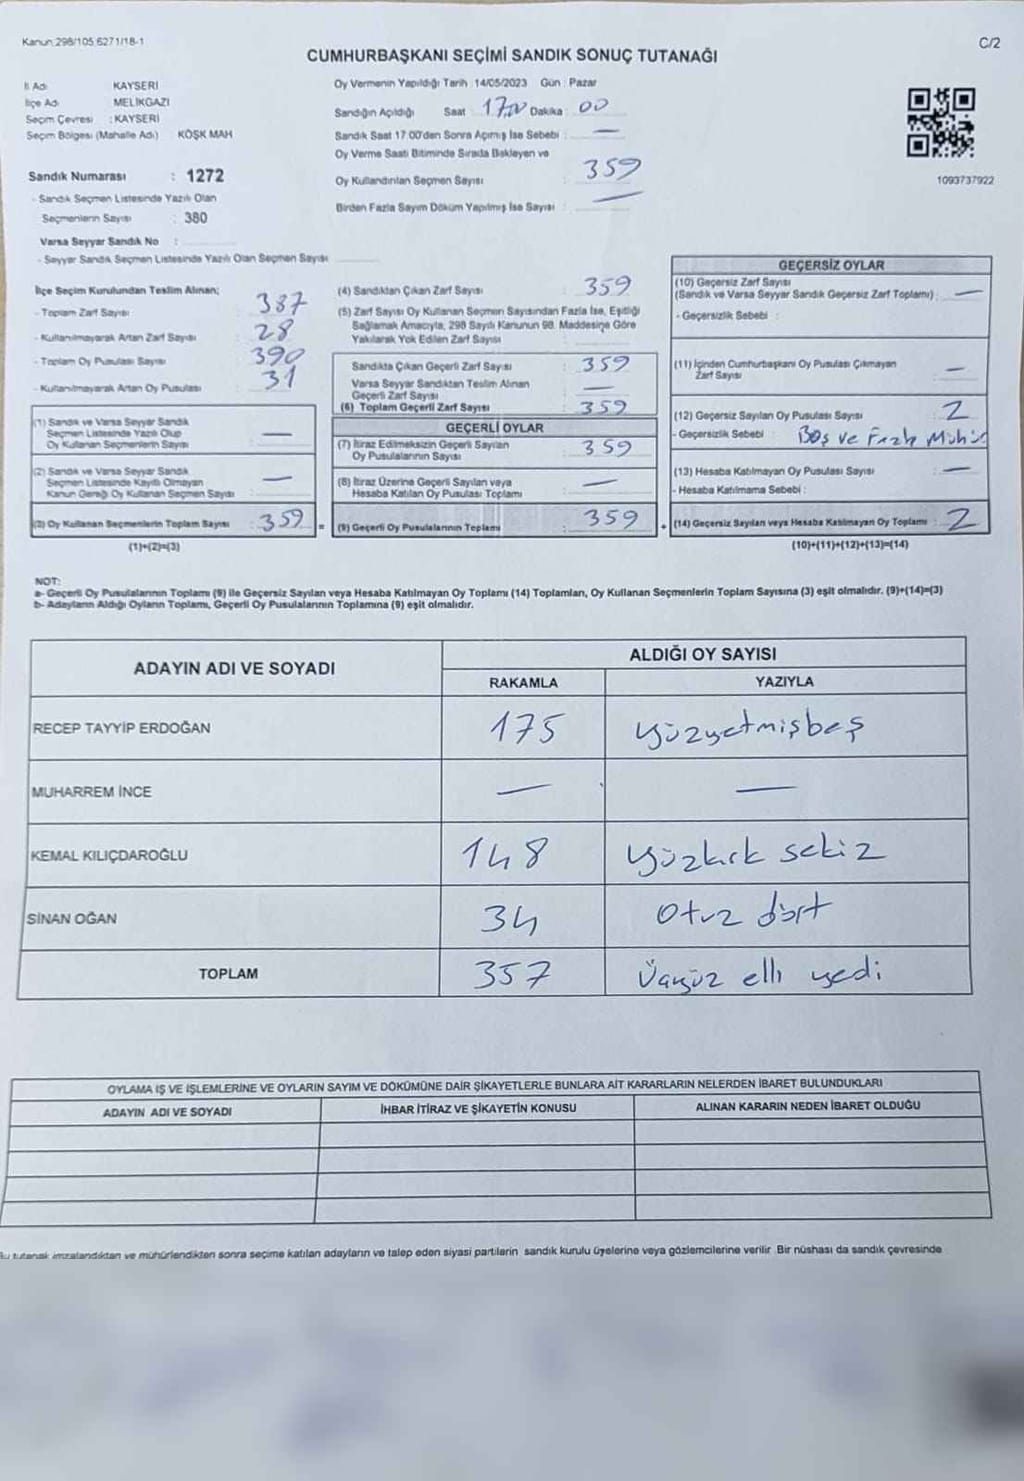 Kanun:298/105,6271/18-1
C/2
CUMHURBAŞKANI SEÇİMİ SANDIK SONUÇ TUTANAĞI
İl Adı KAYSERİ
İlçe Adı MELİKGAZİ
Seçim Çevresi : KAYSERİ
Seçim Bölgesi (Mahalle Adı) KÖŞK MAH
Sandık Numarası : 1272
- Sandık Seçmen Listesinde Yazılı Olan
Seçmenlerin Sayısı : 380
Varsa Seyyar Sandık No :
- Seyyar Sandık Seçmen Listesinde Yazılı Olan Seçmen Sayısı
Oy Vermenin Yapıldığı Tarih : 14/05/2023 Gün : Pazar
Sandığın Açıldığı Saat : 17,00 Dakika : 00
Sandık Saat 17:00'den Sonra Açımış İse Sebebi : —
Oy Verme Saati Bitiminde Sırada Bekleyen ve
Oy Kullandırılan Seçmen Sayısı : 359
Birden Fazla Sayım Döküm Yapılmış İse Sayısı : —
1093737922
İlçe Seçim Kurulundan Teslim Alınan;
- Toplam Zarf Sayısı : 387
- Kullanılmayarak Artan Zarf Sayısı : 28
- Toplam Oy Pusulası Sayısı : 390
- Kullanılmayarak Artan Oy Pusulası : 31
(1) Sandık ve Varsa Seyyar Sandık
Seçmen Listesinde Yazılı Olup
Oy Kullanan Seçmenlerin Sayısı : —
(2) Sandık ve Varsa Seyyar Sandık
Seçmen Listesinde Kayıtlı Olmayan
Kanun Gereği Oy Kullanan Seçmen Sayısı : —
(3) Oy Kullanan Seçmenlerin Toplam Sayısı : 359 =
(1)+(2)=(3)
(4) Sandıktan Çıkan Zarf Sayısı : 359
(5) Zarf Sayısı Oy Kullanan Seçmen Sayısından Fazla İse, Eşitliği
Sağlamak Amacıyla, 298 Sayılı Kanunun 98. Maddesine Göre
Yakılarak Yok Edilen Zarf Sayısı
Sandıkta Çıkan Geçerli Zarf Sayısı : 359
Varsa Seyyar Sandıktan Teslim Alınan
Geçerli Zarf Sayısı : —
(6) Toplam Geçerli Zarf Sayısı : 359
GEÇERLİ OYLAR
(7) İtiraz Edilmeksizin Geçerli Sayılan
Oy Pusulalarının Sayısı : 359
(8) İtiraz Üzerine Geçerli Sayılan veya
Hesaba Katılan Oy Pusulası Toplamı : —
(9) Geçerli Oy Pusulalarının Toplamı : 359 +
GEÇERSİZ OYLAR
(10) Geçersiz Zarf Sayısı
(Sandık ve Varsa Seyyar Sandık Geçersiz Zarf Toplamı) : —
- Geçersizlik Sebebi :
(11) İçinden Cumhurbaşkanı Oy Pusulası Çıkmayan
Zarf Sayısı : —
(12) Geçersiz Sayılan Oy Pusulası Sayısı : 2
- Geçersizlik Sebebi : Boş ve Fazla Mühür
(13) Hesaba Katılmayan Oy Pusulası Sayısı : —
- Hesaba Katılmama Sebebi :
(14) Geçersiz Sayılan veya Hesaba Katılmayan Oy Toplamı : 2
(10)+(11)+(12)+(13)=(14)
NOT:
a- Geçerli Oy Pusulalarının Toplamı (9) ile Geçersiz Sayılan veya Hesaba Katılmayan Oy Toplamı (14) Toplamları, Oy Kullanan Seçmenlerin Toplam Sayısına (3) eşit olmalıdır. (9)+(14)=(3)
b- Adayların Aldığı Oyların Toplamı, Geçerli Oy Pusulalarının Toplamına (9) eşit olmalıdır.
ADAYIN ADI VE SOYADI
ALDIĞI OY SAYISI
RAKAMLA YAZIYLA
RECEP TAYYİP ERDOĞAN 175 yüzyetmişbeş
MUHARREM İNCE — —
KEMAL KILIÇDAROĞLU 148 yüzkırk sekiz
SİNAN OĞAN 34 Otuz dört
TOPLAM 357 Üçyüz elli yedi
OYLAMA İŞ VE İŞLEMLERİNE VE OYLARIN SAYIM VE DÖKÜMÜNE DAİR ŞİKAYETLERLE BUNLARA AİT KARARLARIN NELERDEN İBARET BULUNDUKLARI
ADAYIN ADI VE SOYADI İHBAR İTİRAZ VE ŞİKAYETİN KONUSU ALINAN KARARIN NEDEN İBARET OLDUĞU
Bu tutanak imzalandıktan ve mühürlendikten sonra seçime katılan adayların ve talep eden siyasi partilerin sandık kurulu üyelerine veya gözlemcilerine verilir. Bir nüshası da sandık çevresinde